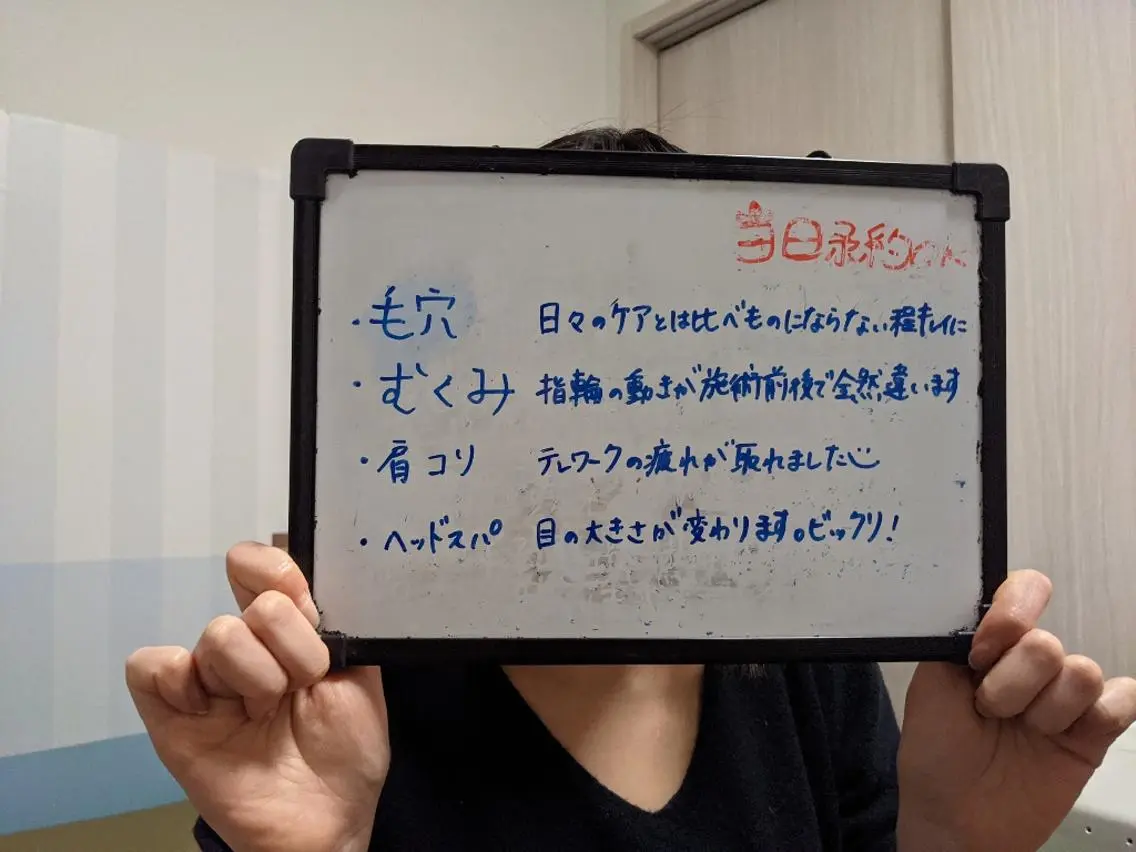 当日予約OK
・毛穴 日々のケアとは比べものにならない程キレイに
・むくみ 指輪の動きが施術前後で全然違います
・肩コリ テレワークの疲れが取れました
・ヘッドスパ 目の大きさが変わります。ビックリ!